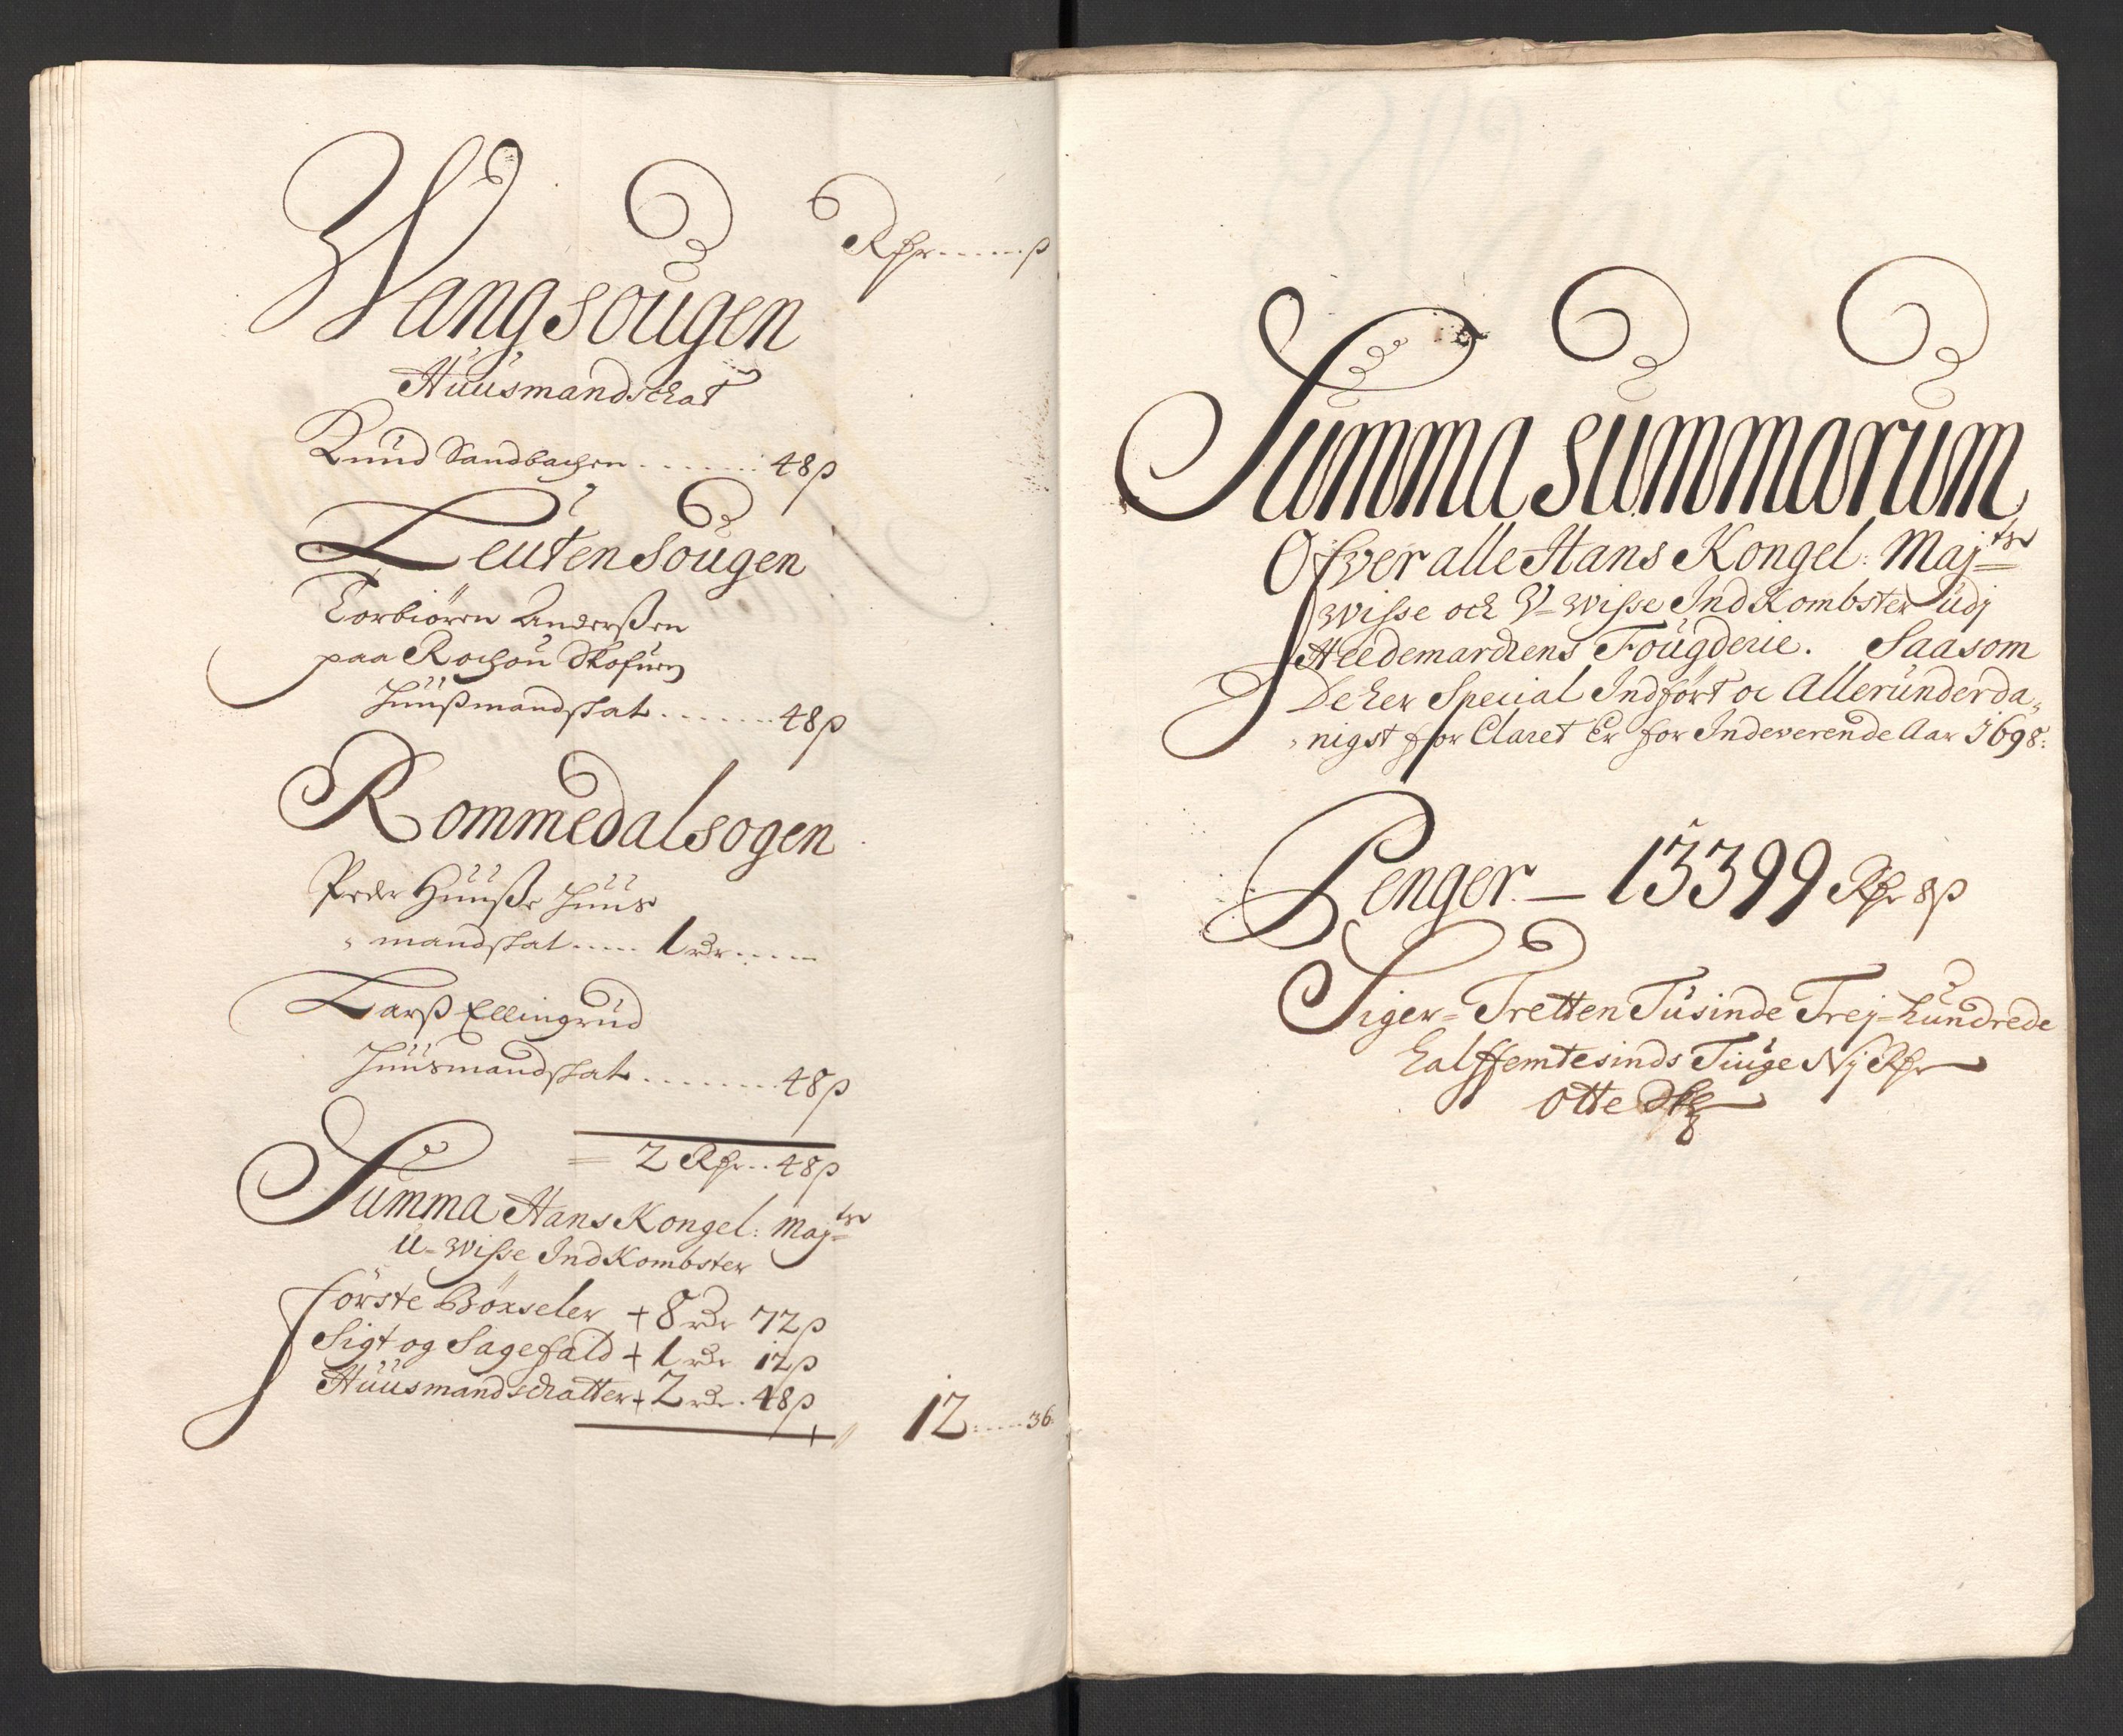 Rdr ...... ß
Wangsougen
Huusmandschat
Knud Sandbachen ....... 48 ß
Leuten Sougen
Torbiören Anderßen
paa Rochou Skofuen
Huußmandskat ....... 48 ß
Rommedalsogen
Peder Huuße Huus
mandskat ..... 1 rdr .....
Larß Ellingrud
Huusmandskat ........ 48 ß
= 2 Rdr .. 48 ß
Summa Hans Kongel: Maj:ts
U-Wisse IndKombster
förste Böxseler + 8 rdr 72 ß
Sigt og Sagefald + 1 rdr 12 ß
Huusmandschatter + 2 rdr. 48 ß
12 ..... 36
Summa Summarum
Ofver alle Hans Kongel: Maj:ts
Wisse och U-Wisse IndKombster udj
Heedemarchens Fougderie. Saasom
De her Special Indfört oc Allerunderda,
,nigst for Claret Er for Indeverende Aar 1698:
Penger. — 13399 Rdr 8 ß
Siger = Tretten Tusinde Trej = hundrede
halffemtesinds Tiuge Nj Rdr
Otte Skl